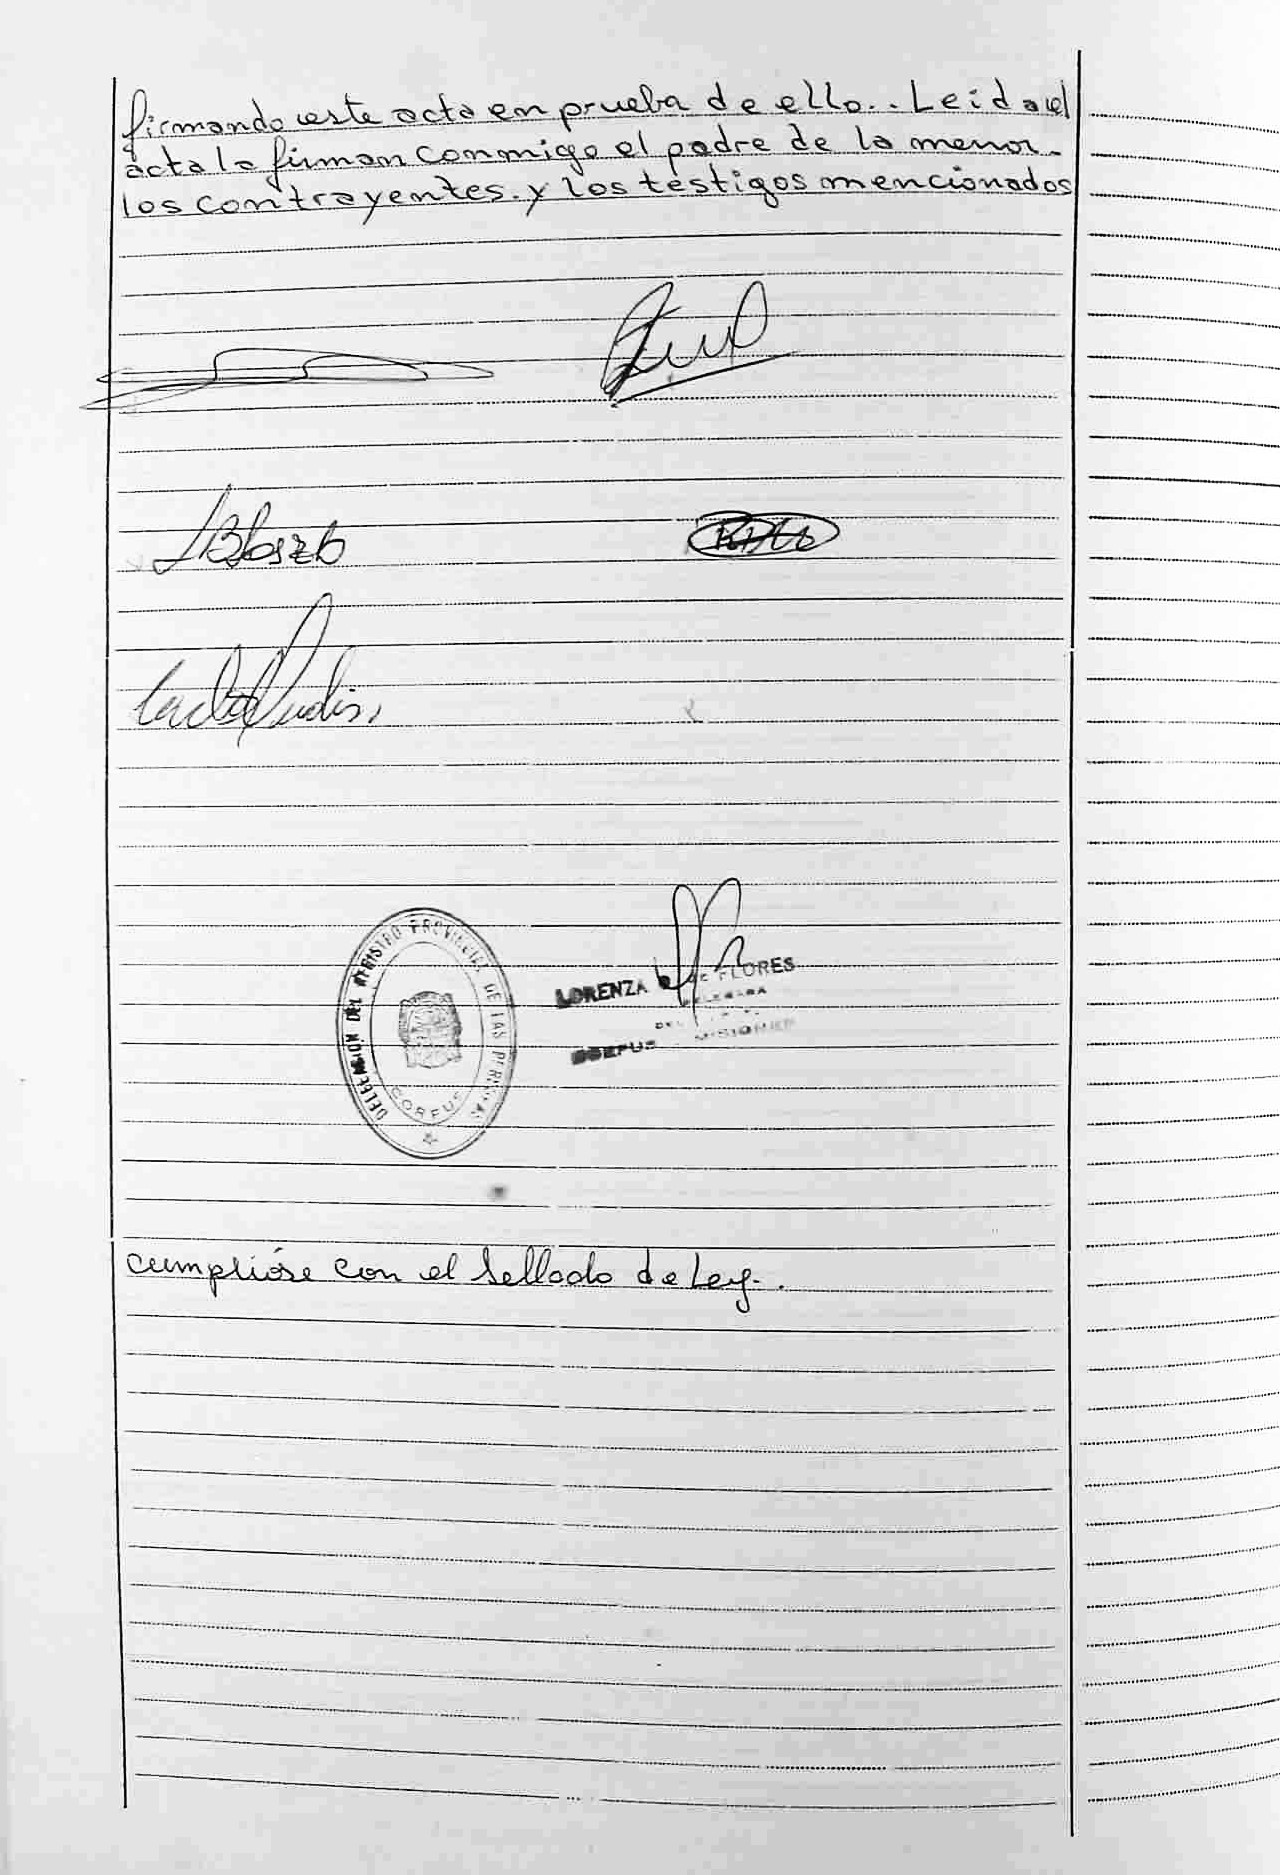 firmando este acta en prueba de ello.. Leida el
acta la firman conmigo el padre de la menor.
los contrayentes. y los testigos mencionados
DELEGACION DEL REGISTRO PROVINCIAL DE LAS PERSONAS
CORPUS
LORENZA DE FLORES
DELEGADA
CORPUS MISIONES
cumplióse con el sellado de Ley.